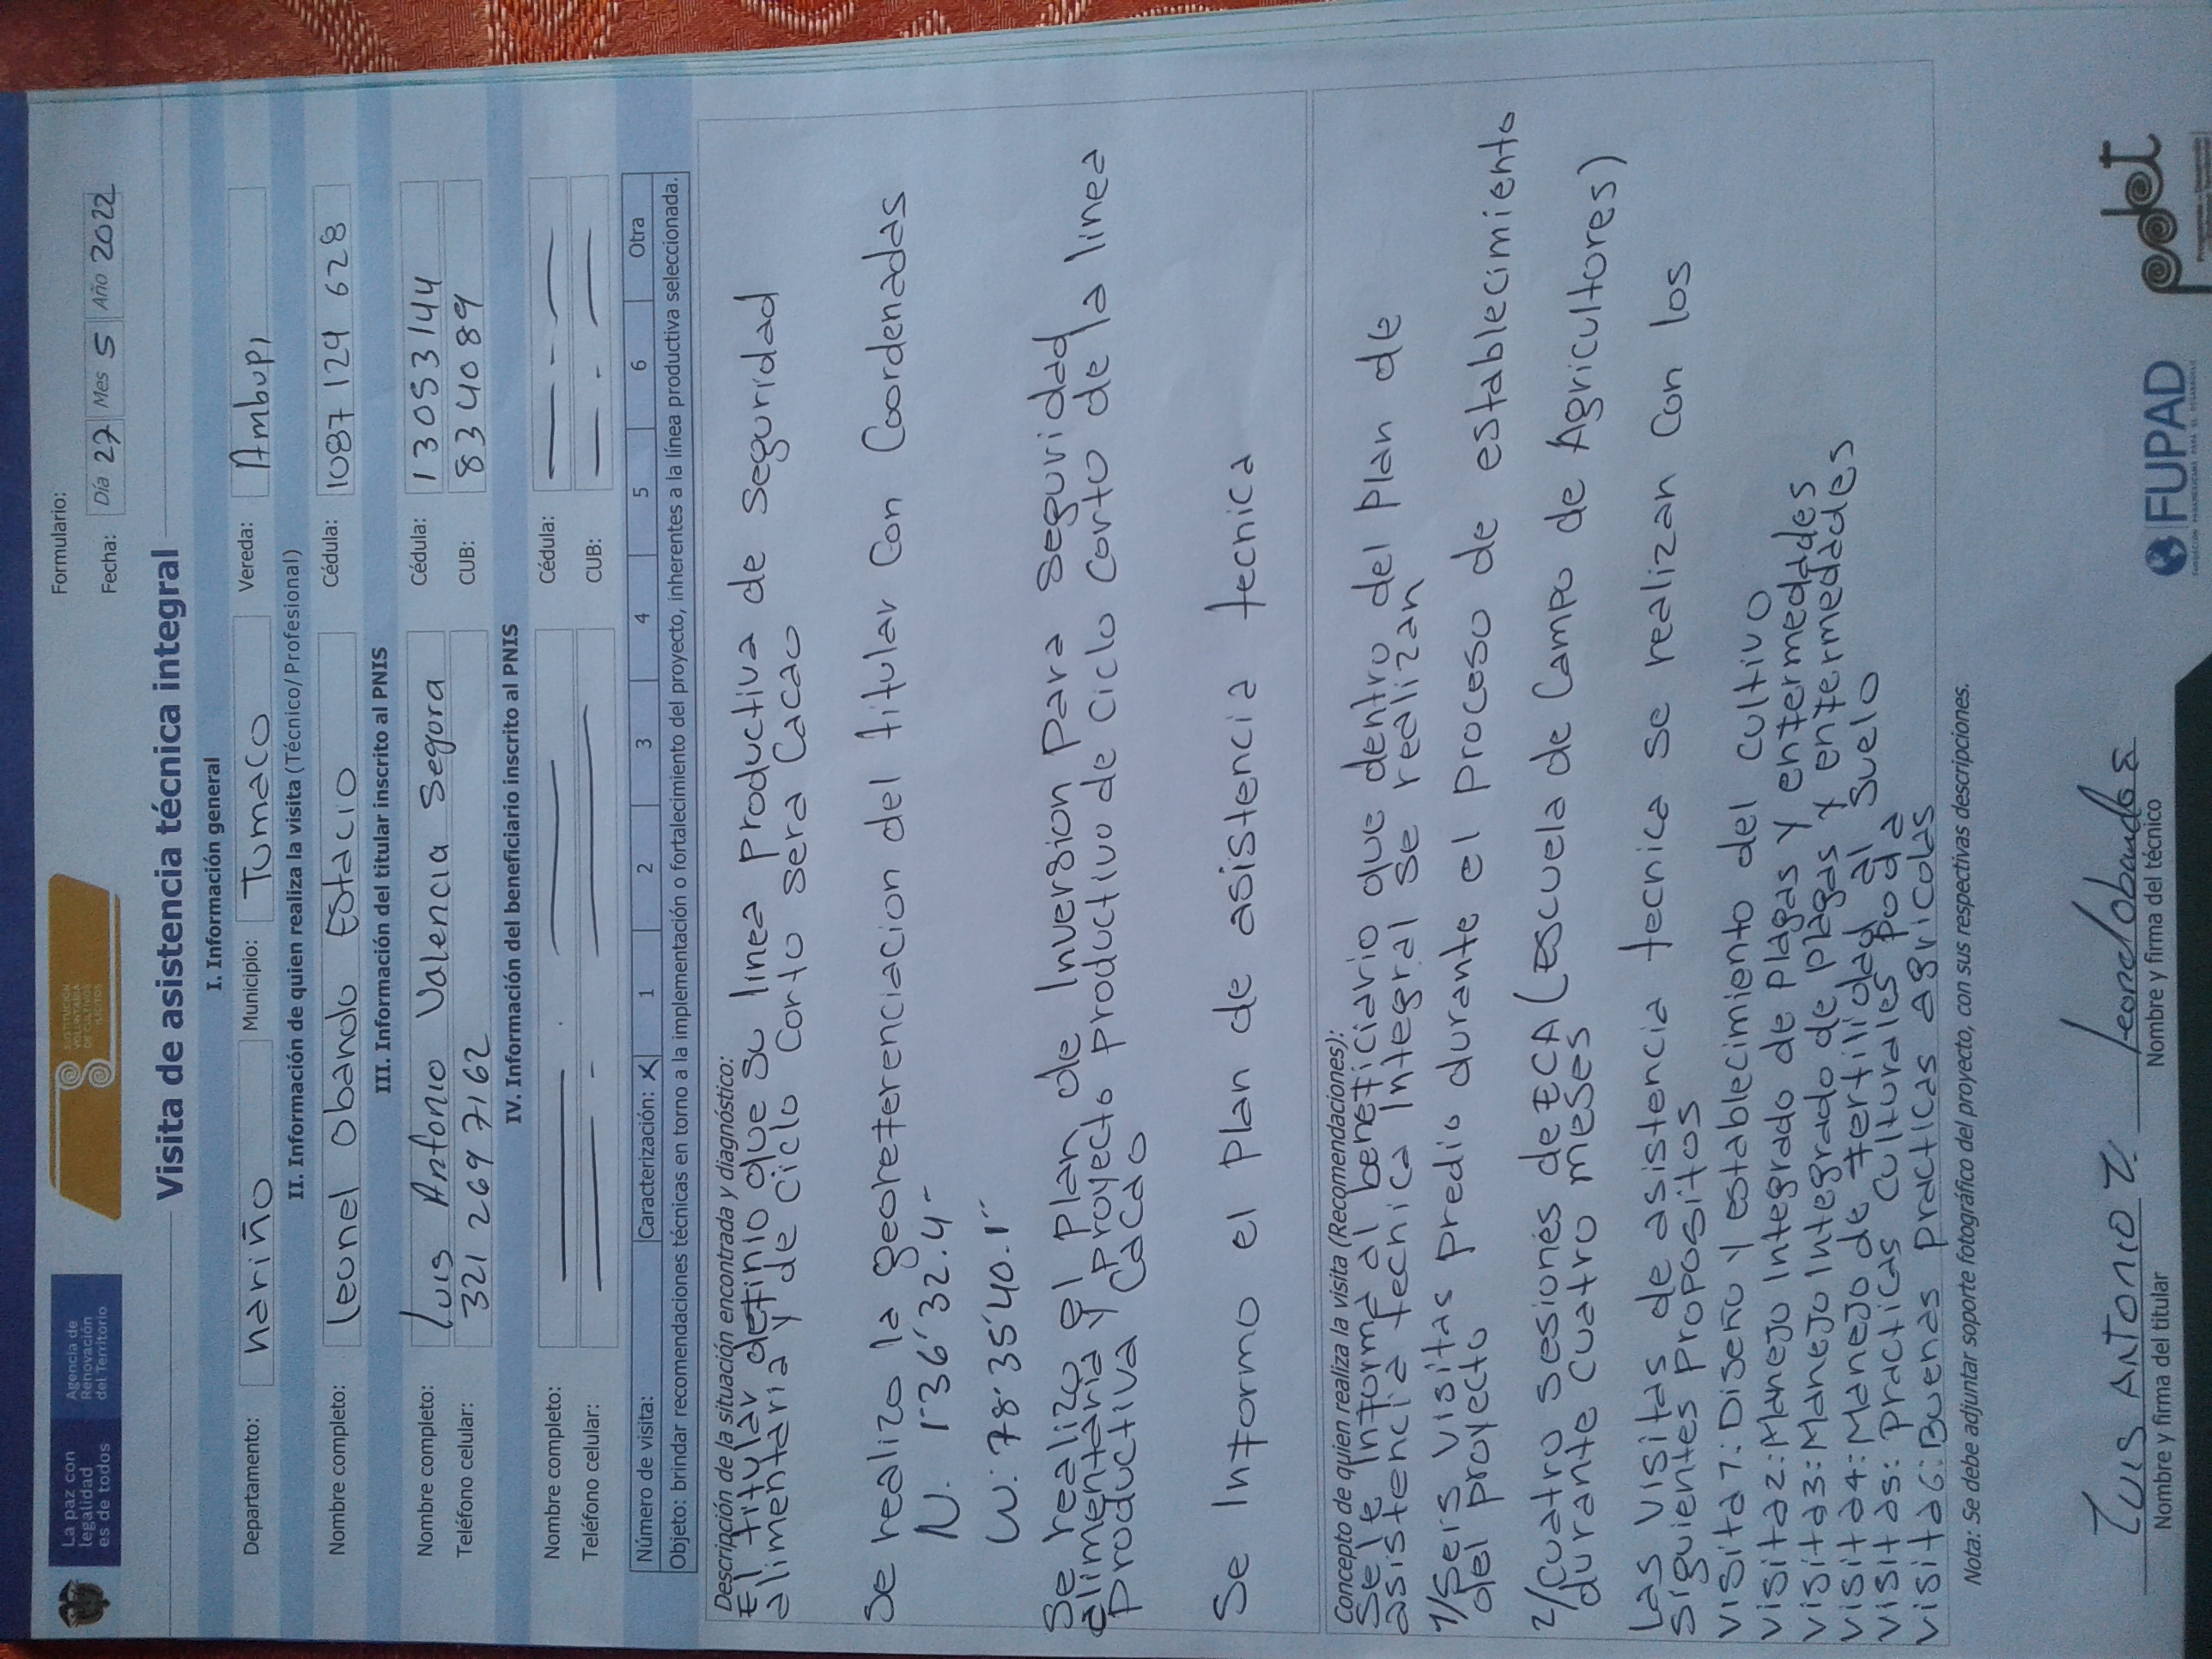 La paz con
legalidad
es de todos
Agencia de
Renovación
del Territorio
SUSTITUCIÓN
VOLUNTARIA
DE CULTIVOS
ILÍCITOS
Formulario:
Fecha: Día 27 Mes 5 Año 2022
Visita de asistencia técnica integral
I. Información general
Departamento: Nariño Municipio: Tumaco Vereda: Ambupi
II. Información de quien realiza la visita (Técnico/ Profesional)
Nombre completo: Leonel Obando Estacio Cédula: 1087 124 628
III. Información del titular inscrito al PNIS
Nombre completo: Luis Antonio Valencia Segura Cédula: 13053144
Teléfono celular: 321 269 7162 CUB: 834089
IV. Información del beneficiario inscrito al PNIS
Nombre completo: Cédula:
Teléfono celular: CUB:
Número de visita: Caracterización: X 1 2 3 4 5 6 Otra
Objeto: brindar recomendaciones técnicas en torno a la implementación o fortalecimiento del proyecto, inherentes a la línea productiva seleccionada.
Descripción de la situación encontrada y diagnóstico:
El titular definio que su linea productiva de seguridad
alimentaria y de ciclo corto sera Cacao
Se realizo la georeferenciacion del titular con Coordenadas
N. 1°36'32.4"
W: 78°35'40.1"
Se realizo el Plan de Inversion Para seguridad
alimentaria y Proyecto Productivo de Ciclo Corto de la linea
Productiva Cacao
Se Informo el Plan de asistencia tecnica
Concepto de quien realiza la visita (Recomendaciones):
Se le Informa al beneficiario que dentro del Plan de
asistencia tecnica Integral se realizan
1/Seis visitas predio durante el proceso de establecimiento
del proyecto
2/Cuatro sesiones de ECA (escuela de Campo de Agricultores)
durante cuatro meses
Las visitas de asistencia tecnica se realizan con los
siguientes propositos
visita1: Diseño y establecimiento del cultivo
visita2: Manejo Integrado de plagas y enfermedades
visita3: Manejo Integrado de plagas y enfermedades
visita4: Manejo de fertilidad al suelo
visita5: Practicas culturales poda
visita6: Buenas practicas agricolas
Nota: Se debe adjuntar soporte fotográfico del proyecto, con sus respectivas descripciones.
Luis Antonio V. Leonel obando e
Nombre y firma del titular Nombre y firma del técnico
FUPAD
pdet